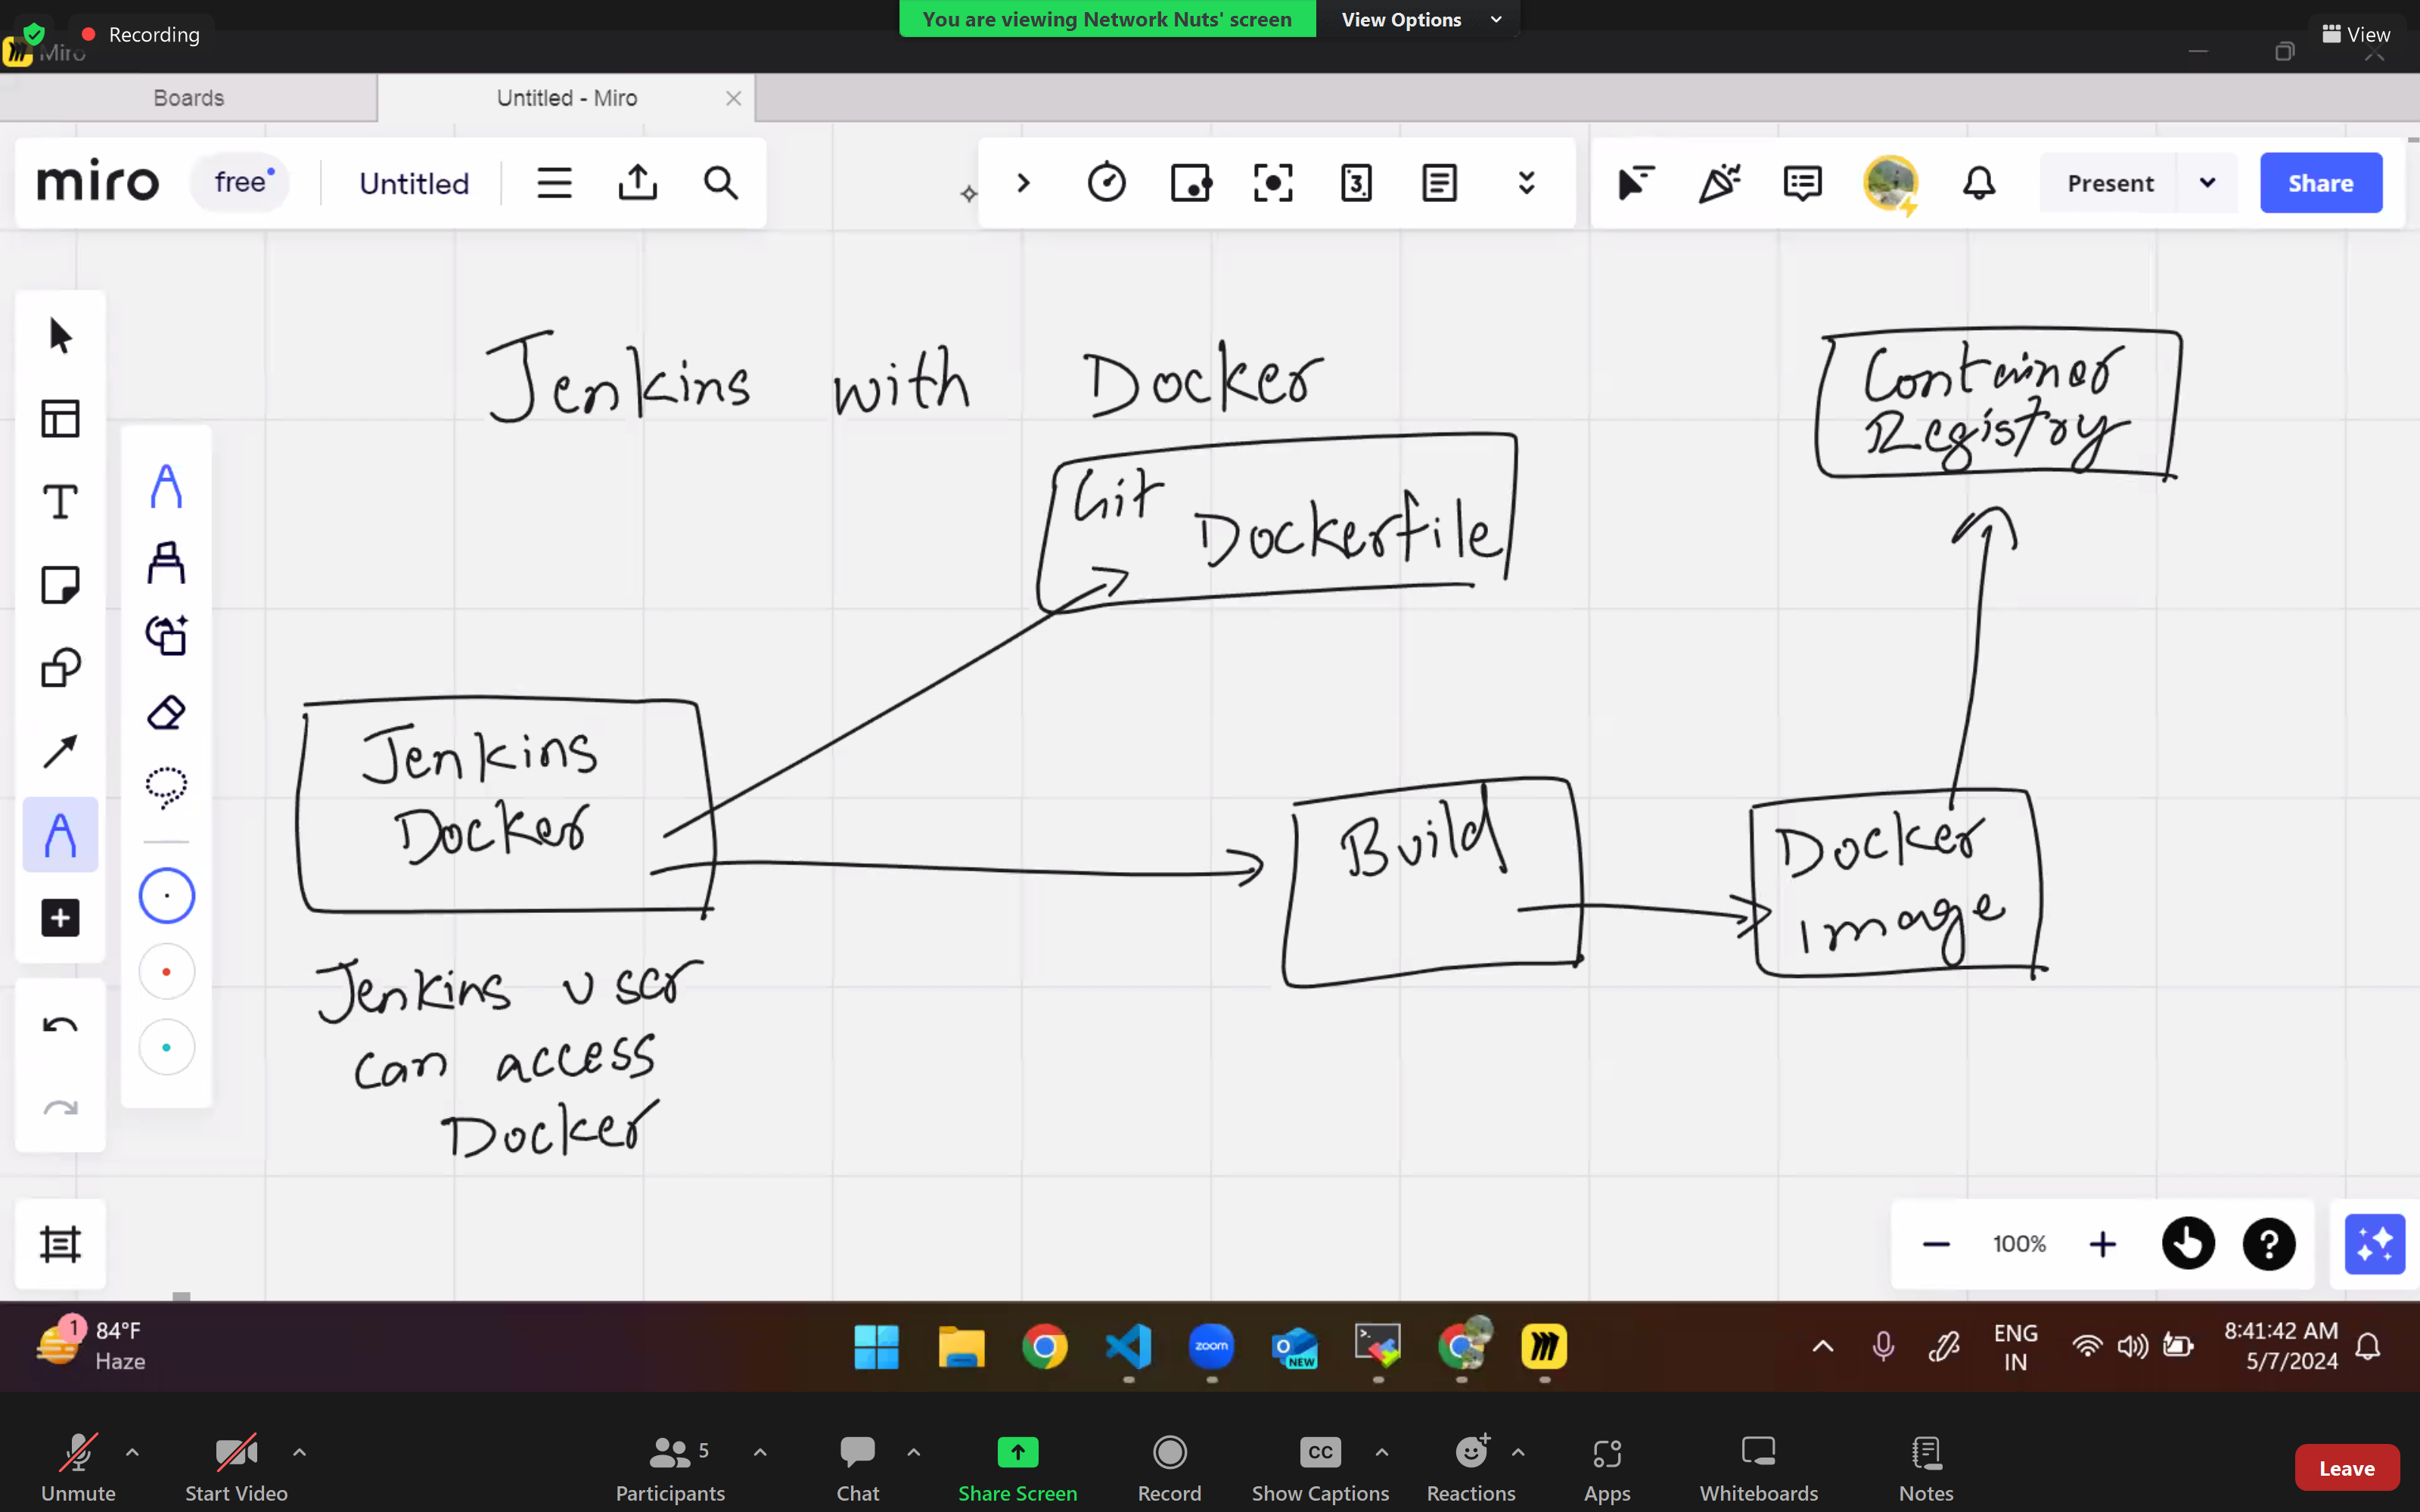 You are viewing Network Nuts' screen
View Options
Recording
View
Miro
Boards
Untitled - Miro
miro
free
Untitled
3
Present
Share
Jenkins with Docker
Container
Registry
Git
Dockerfile
Jenkins
Docker
Build
Docker
image
Jenkins user
can access
Docker
100%
?
1
84°F
Haze
zoom
NEW
ENG
IN
8:41:42 AM
5/7/2024
Unmute
Start Video
5
Participants
Chat
Share Screen
Record
CC
Show Captions
Reactions
Apps
Whiteboards
Notes
Leave